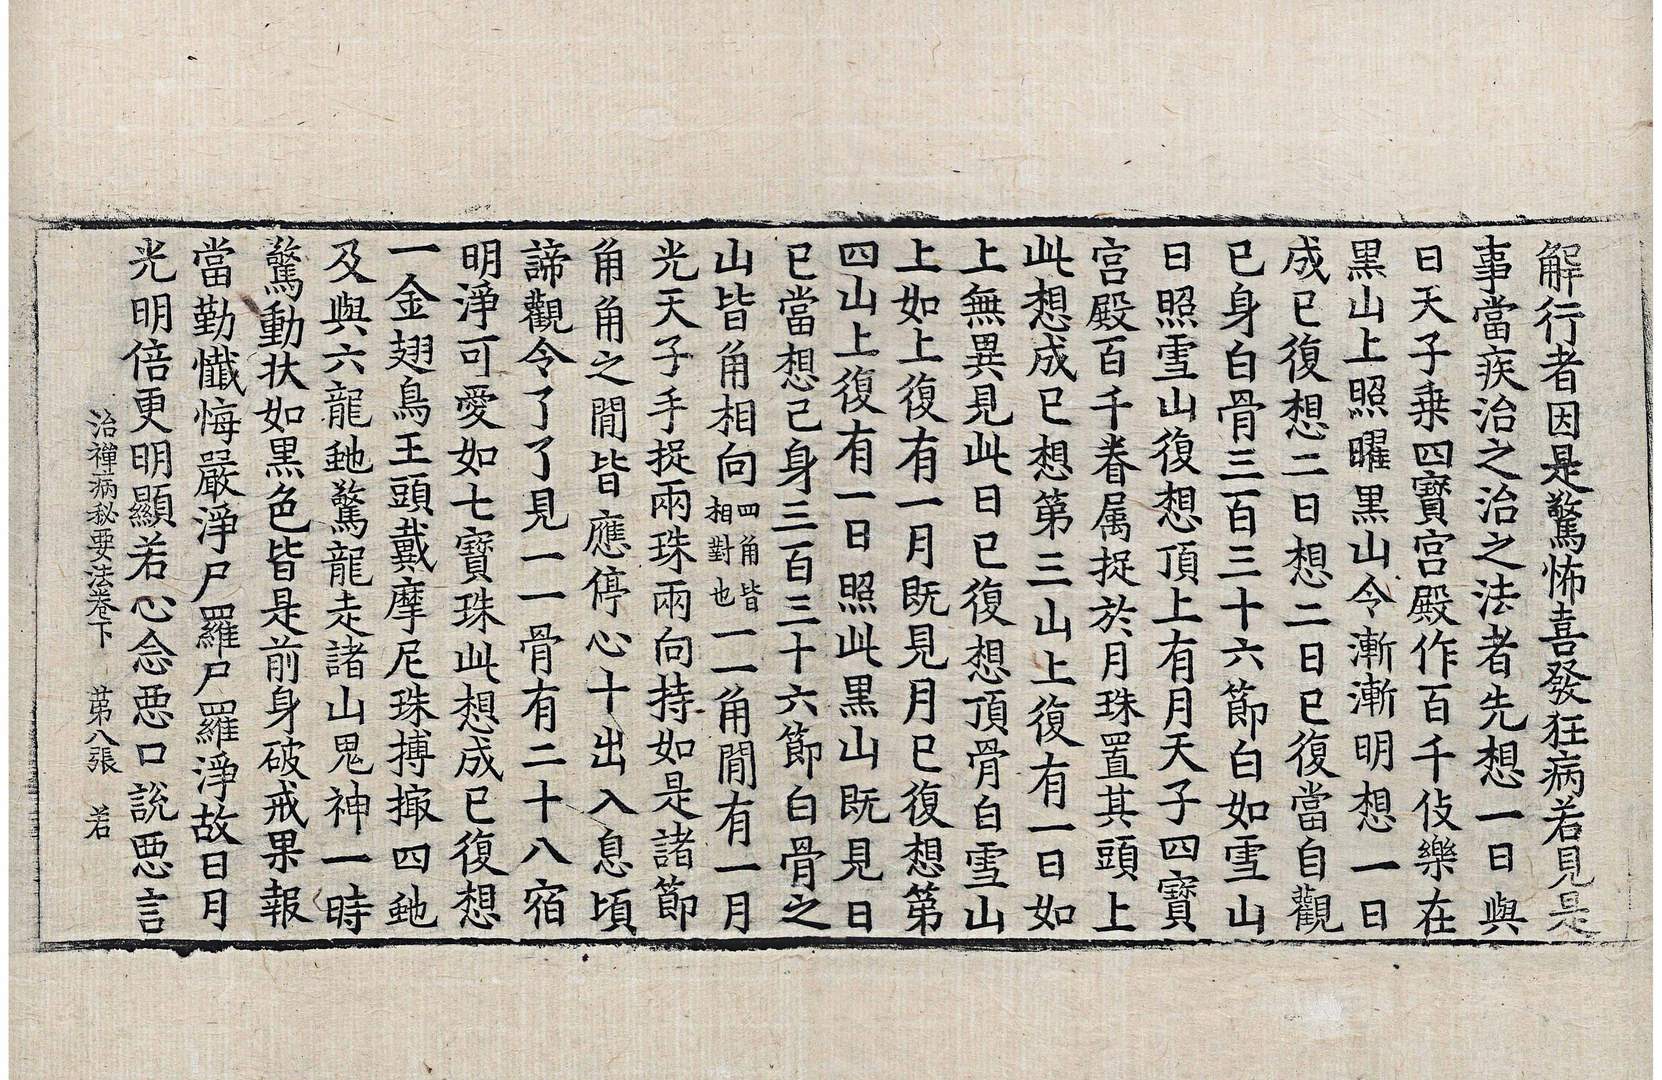 解行者因是驚怖喜發狂病若見是
事當疾治之治之法者先想一日與
日天子乗四寶宮殿作百千伎樂在
黒山上照曜黒山令漸漸明想一日
成已復想二日想二日已復當自觀
已身白骨三百三十六節白如雪山
日照雪山復想頂上有月天子四寶
宮殿百千眷属捉於月珠置其頭上
此想成已想第三山上復有一日如
上無異見此日已復想頂骨白雪山
上如上復有一月既見月已復想第
四山上復有一日照此黒山既見日
已當想己身三百三十六節白骨之
山皆角相向四角皆相對也一一角間有一月
光天子手捉兩珠兩向持如是諸節
角角之間皆應停心十出入息頃
諦觀令了了見一一骨有二十八宿
明淨可愛如七寶珠此想成已復想
一金翅鳥王頭戴摩尼珠搏撮四虵
及與六龍虵驚龍走諸山鬼神一時
驚動状如黒色皆是前身破戒果報
當勤懺悔嚴淨尸羅尸羅淨故日月
光明倍更明顯若心念惡口說惡言
治禪病秘要法卷下　第八張　若